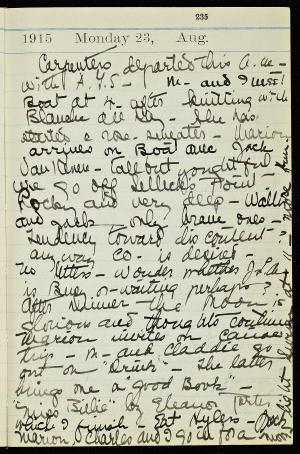 235
1915 Monday 23, Aug.
Carpenters departed this a.m.
with A.Y.S - M- and I meet
Boat at 4- after knitting with
Blanche all day - She has
started a rose sweater - Marion
arrives on Boat and Jack
Van - tall but youthful
We go off Sellecks Point -
Rocky and very deep - Walter
and Jack - only brave ones -
Tendency toward discontent -
any way Co. is desired -
no letters - Wonder whether
is Busy or waiting perhaps?
After dinner the Moon is
Glorious and thoughts continue
Marion invites on Canoe
trip - M- and Claddie go
out on "drink" - The latter
brings me a good Book -
"Miss Billie" by Eleanor Porter
which I finish - at Hylers -
Marion, Charles and I go in for a
moonlight